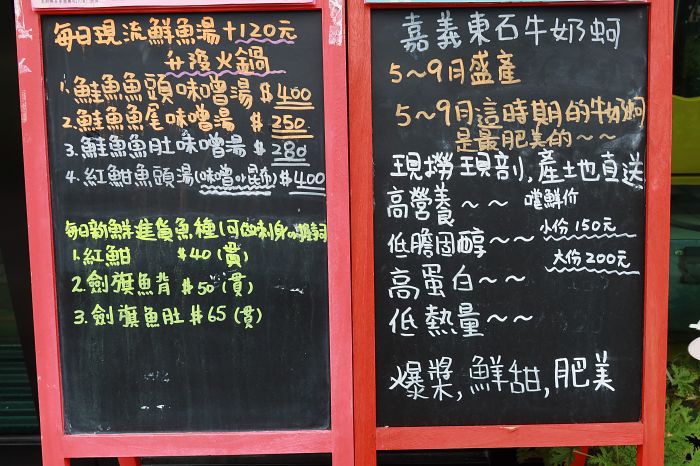 每日現流鮮魚湯+120元
升級火鍋
1.鮭魚魚頭味噌湯 $400
2.鮭魚魚尾味噌湯 $250
3.鮭魚魚肚味噌湯 $280
4.紅魽魚頭湯(味噌or昆布)$400
每日新鮮進貨魚種(可做刺身or握壽司
1.紅魽 $40(貫)
2.劍旗魚背 $50(貫)
3.劍旗魚肚 $65(貫)
嘉義東石牛奶蚵
5~9月盛產
5~9月這時期的牛奶蚵
是最肥美的~~
現撈現剖,產土地直送
高營養~~ 嚐鮮价
低膽固醇~~ 小份150元
大份200元
高蛋白~~
低熱量~~
爆漿,鮮甜,肥美